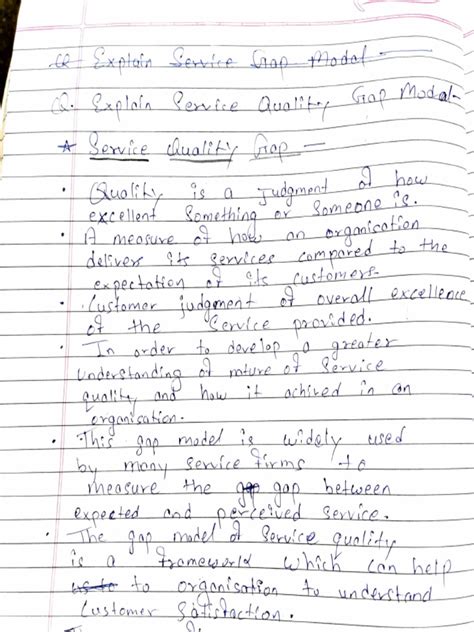 Q Explain Service Gap Modal -
Q. Explain Service Quality Gap Modal-
* Service Quality Gap -
• Quality is a judgment of how
excellent Something or Someone is.
• A measure of how an organisation
delivers its services compared to the
expectation of its customers.
• Customer judgment of overall excellence
of the Service provided.
• In order to develop a greater
understanding of nature of Service
quality and how it achived in an
organisation.
• This gap model is widely used
by many service firms to
measure the gap gap between
expected and perceived service.
• The gap model of Service quality
is a framework which can help
to organisation to understand
Customer Satisfaction.